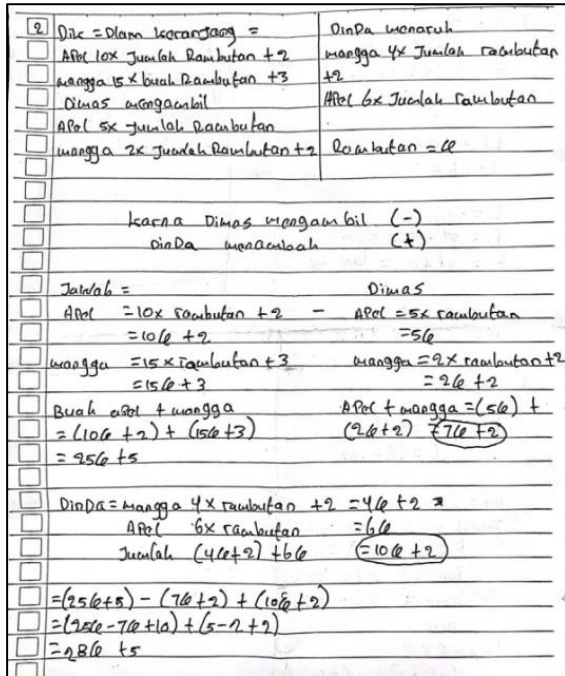 2 Dik = Dlam keranjang =
Apel 10x Jumlah Rambutan +2
mangga 15 x buah Rambutan +3
Dimas mengambil
Apel 5x Jumlah Rambutan
mangga 2x Jumlah Rambutan +2
DinDa menaruh
mangga 4x Jumlah rambutan
+2
Apel 6x Jumlah rambutan
Rambutan = a
karna Dimas mengambil (-)
DinDa menambah (+)
Jawab =
Apel = 10x rambutan +2
= 10a + 2
mangga = 15 x rambutan + 3
= 15a + 3
Buah apel + mangga
= (10a + 2) + (15a + 3)
= 25a + 5
-
Dimas
Apel = 5x rambutan
= 5a
mangga = 2x rambutan +2
= 2a + 2
Apel + mangga = (5a) +
(2a + 2) = 7a + 2
DinDa = mangga 4x rambutan +2 = 4a + 2
Apel 6x rambutan = 6a
Jumlah (4a+2) + 6a = 10a + 2
= (25a + 5) - (7a + 2) + (10a + 2)
= (25a - 7a + 10) + (5 - 2 + 2)
= 28a + 5